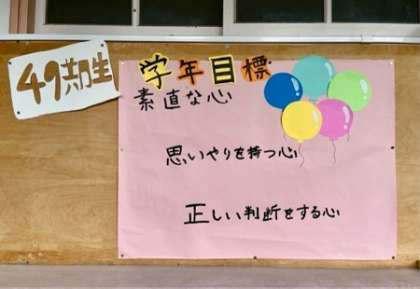 49期生
学年目標
素直な心
思いやりを持つ心
正しい判断をする心